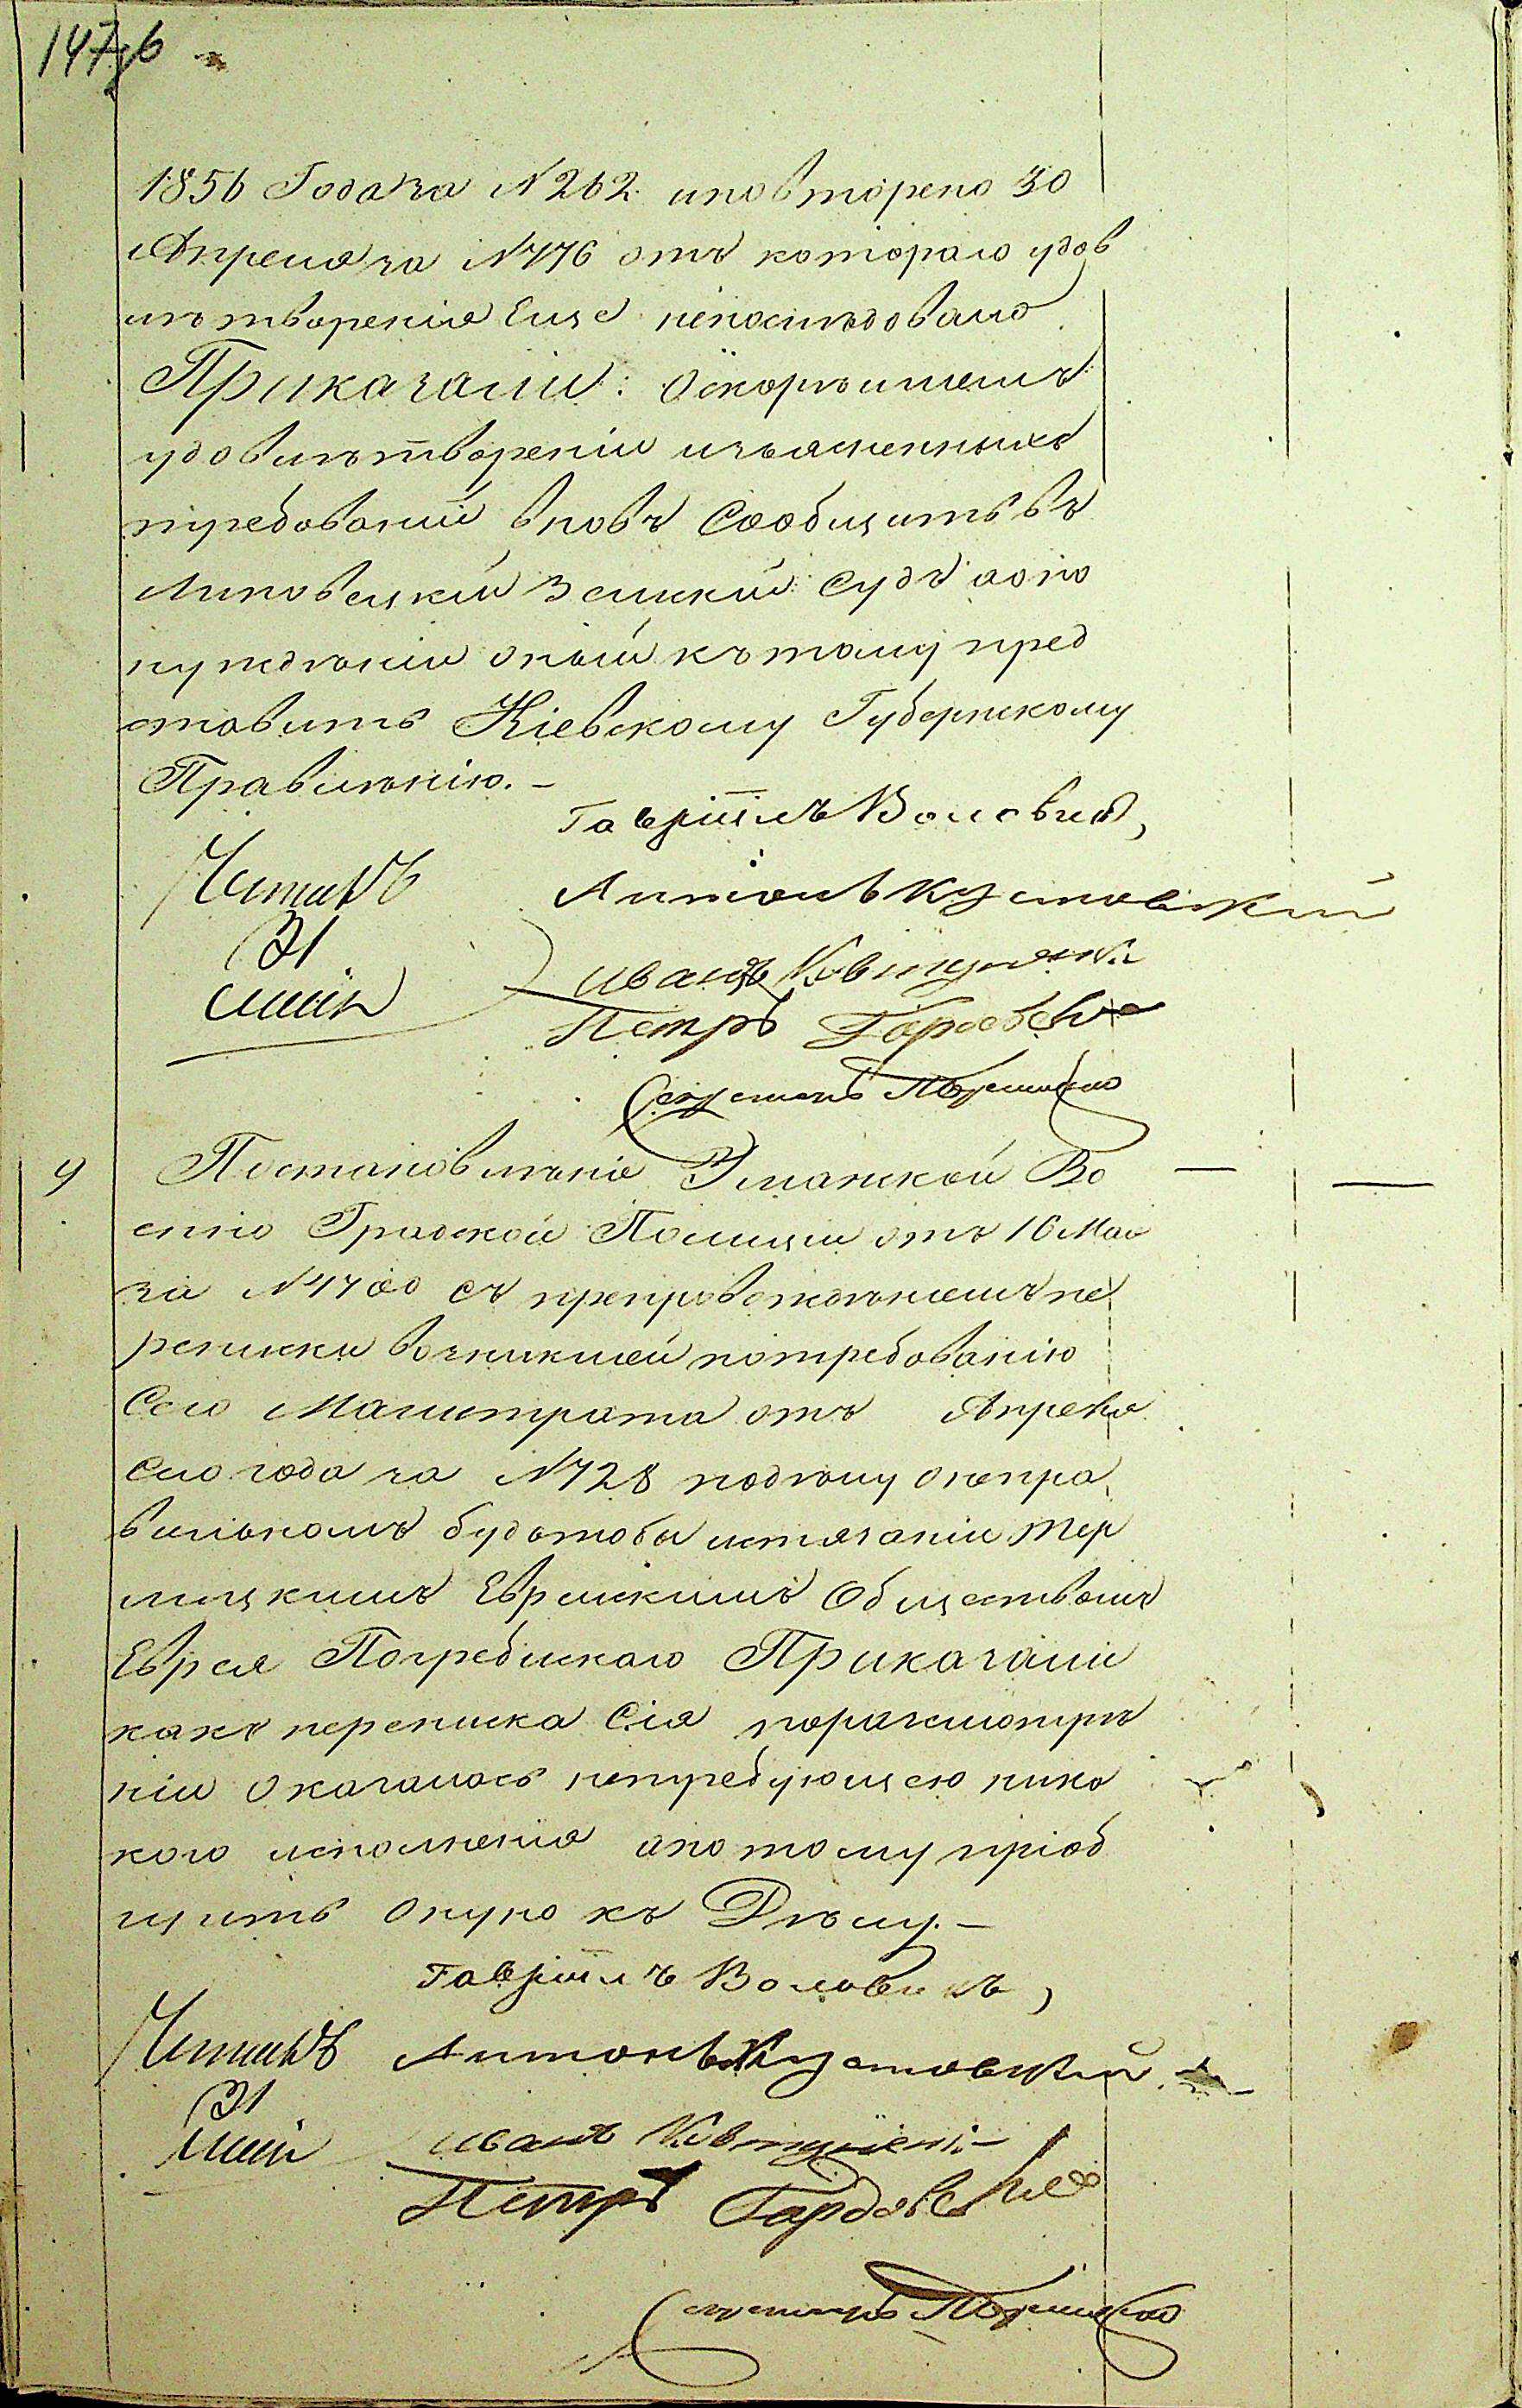 147об
1856 Года за № 262 и повторено 30
Апреля за № 776 отъ котораго удов
лѣтворенія Еще непослѣдовало
Приказали: Оскорѣишемъ
удовлѣтвореніи изъясненныхъ
требованій вновъ Сообщить въ
Липовецкій Земскій Судъ аопо
нужденіи оный къ тому пред
ставить Кіевскому Губернскому
Правлѣнію. –
Гавріилъ Воловикъ,
Читалъ Антонъ Кустовский
31 Иванъ Ковтуненко
Петръ
9 Постановлѣніе Уманской Во
енно Градской Полиции отъ 16 Мая
за № 4700 съ препровождѣніемъ пе
реписки возникшей потребованію
Сего Магистрата отъ Апреля
Сего года за № 728 подѣлу о непра
вильномъ будьтобы истязаніи Тер
лицкимъ Еврейскимъ Обществомъ
Еврея Погребискаго Приказали
какъ переписка Сія поразсмотрѣ
ніи Оказалась нетребующею ника
кого исполненія апотому пріоб
щить Оную къ Дѣлу. –
Гавріилъ Воловикъ,
Читалъ Антонъ Кустовский
31 Иванъ Ковтуненко
Петръ